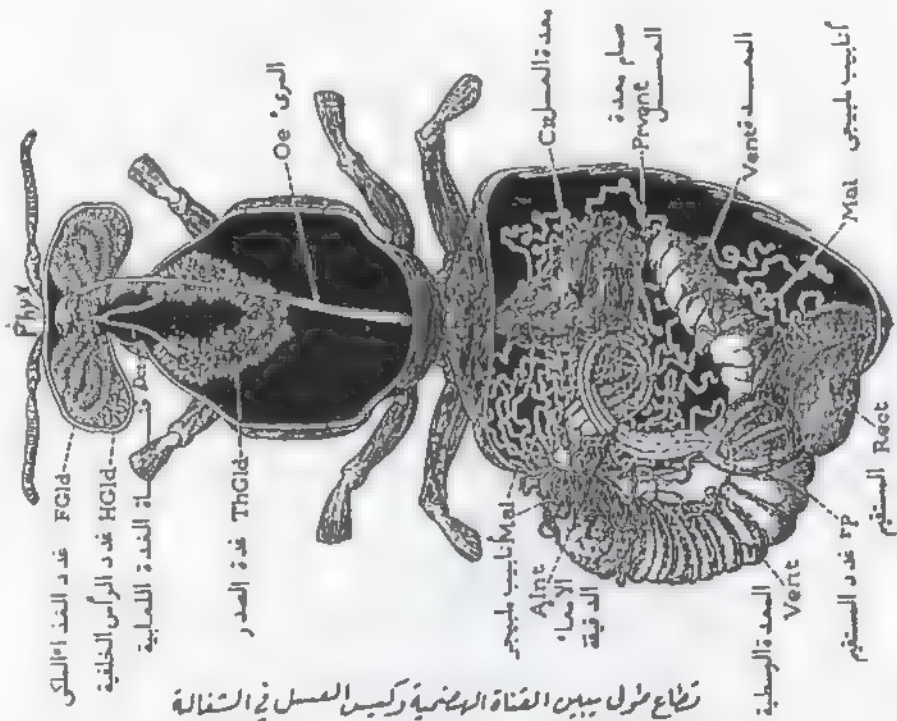 Phyx
غدد الغذاء الملكى FGld
غدد الرأس الخلفية HGld
الغدة اللعابية
غدة الصدر ThGld
المرىء Oe
معدة العسل Cx
صمام معدة
العسل Prvent
المعدة Vent
أنابيب ملبيجى Mal
أنابيب ملبيجى Mal
AInt
الأمعاء
الدقيقة
المعدة الوسطية
Vent
غدد المستقيم rp
المستقيم Rect
قطاع طولى يبين القناة الهضمية وكيس العسل في الشغالة